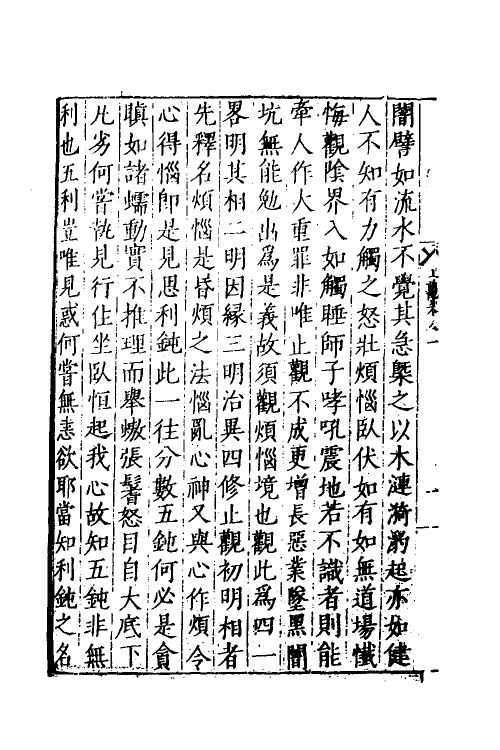 闇譬如流水不覺其急槩之以木漣漪豹起亦如健
人不知有力觸之怒壯煩惱臥伏如有如無道場懺
悔觀陰界入如觸睡師子哮吼震地若不識者則能
牽人作大重罪非唯止觀不成更增長惡業墜黑闇
坑無能勉出為是義故須觀煩惱境也觀此為四一
畧明其相二明因緣三明治異四修止觀初明相者
先釋名煩惱是昏煩之法惱亂心神又與心作煩令
心得惱即是見思利鈍此一往分數五鈍何必是貪
瞋如諸蠕動實不推理而舉螫張髯怒目自大底下
凡劣何嘗執見行住坐臥恒起我心故知五鈍非無
利也五利豈唯見惑何嘗無恚欲耶當知利鈍之名